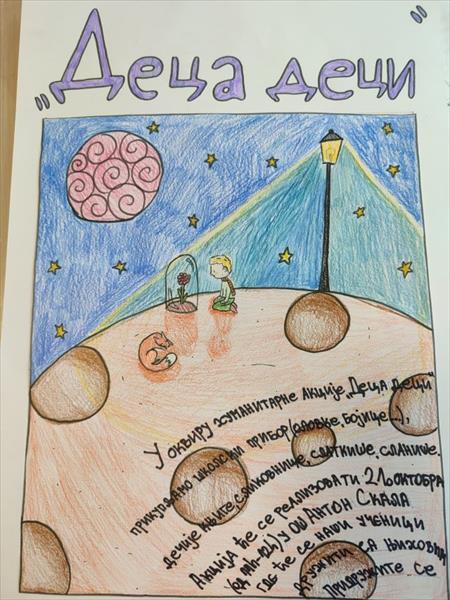 „Деца деци"
У оквиру хуманитарне акције „Деца деци"
прикупљамо школски прибор (оловке, бојице...),
дечије књиге, сликовнице, слаткише, сланише.
Акција ће се реализовати 21. октобра
(од 11h-12h) у ОШ Антон Скала
где ће се наши ученици
дружити са њихови
Придружите се